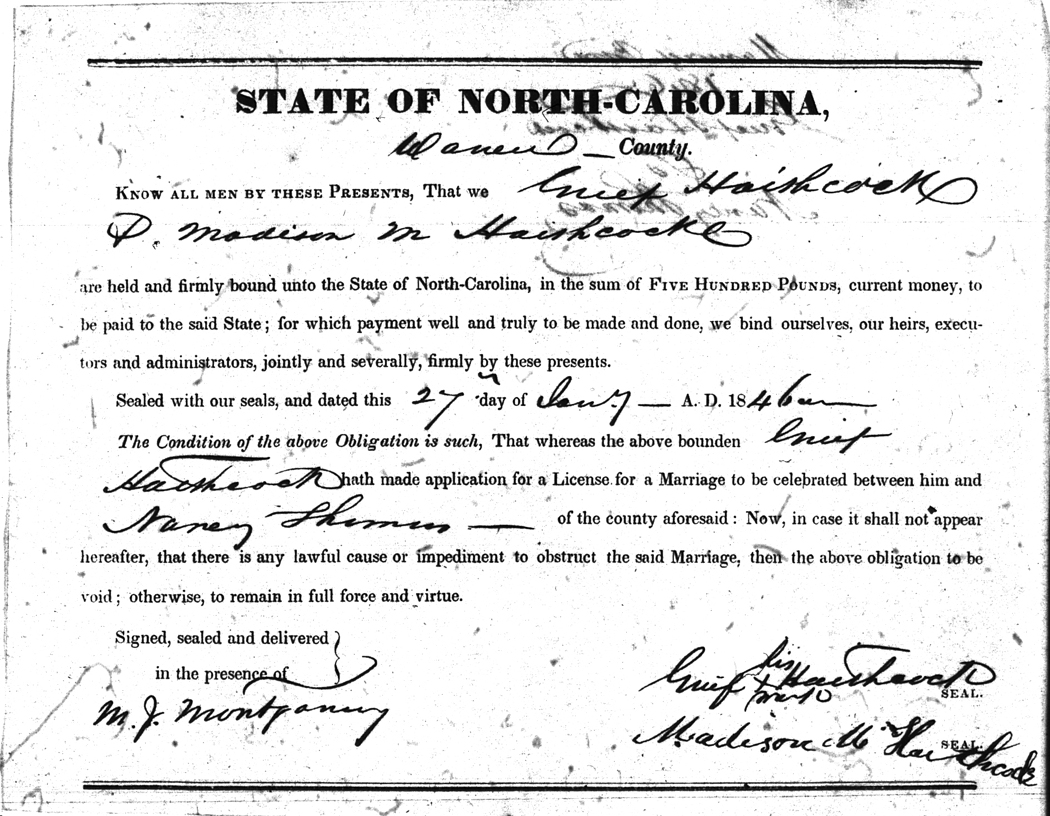 STATE OF NORTH-CAROLINA,
Warren — County.
KNOW ALL MEN BY THESE PRESENTS, That we Grief Haithcock
D. Madison M Haithcock
are held and firmly bound unto the State of North-Carolina, in the sum of FIVE HUNDRED POUNDS, current money, to
be paid to the said State; for which payment well and truly to be made and done, we bind ourselves, our heirs, execu-
tors and administrators, jointly and severally, firmly by these presents.
Sealed with our seals, and dated this 27 day of Jany — A. D. 1846
The Condition of the above Obligation is such, That whereas the above bounden Grief
Haithcock hath made application for a License for a Marriage to be celebrated between him and
Nancy — of the county aforesaid: Now, in case it shall not appear
hereafter, that there is any lawful cause or impediment to obstruct the said Marriage, then the above obligation to be
void; otherwise, to remain in full force and virtue.
Signed, sealed and delivered }
in the presence of
M. J. Montgomery
Grief his x mark Haithcock SEAL.
Madison M Haithcock SEAL.